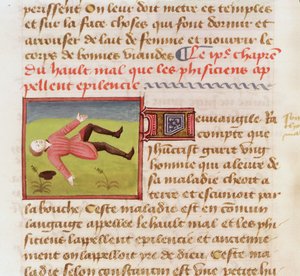 perissent On leur doit mettre et temples
et sur la face choses qui font dormir et
arrouser de lait de femme et nourrir le
corps de bonnes viandes Le ip̃e chapr̃e
du hault mal que les phisiciens ap
pellent epilencie
euuangile Ra
compte que
ihũcrist guerit vng
homme qui a leure de
sa maladie cheoit a
terre et escumoit par
la bouche Ceste maladie est en commun
langaige appellee le hault mal et les phi
siciens lappellent epilencie et ancienne
ment on lappelloit yre de dieu Ceste ma
ladie selon constantin est vne